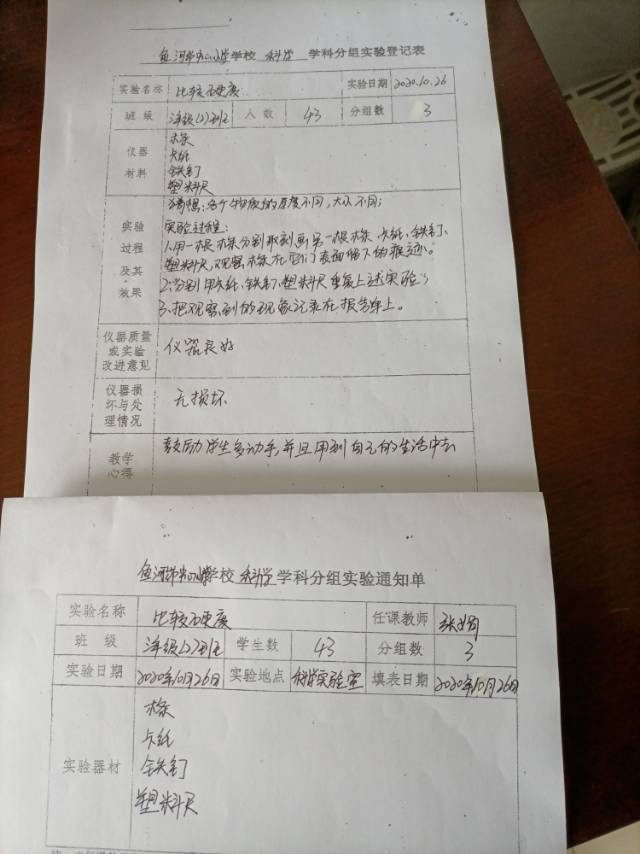 鱼河镇中心小学学校 科学 学科分组实验登记表
实验名称 比较硬度 实验日期 2020.10.26
班级 三年级(2)班 人数 43 分组数 3
仪器材料
木条
卡纸
铁钉
塑料尺
实验过程及其效果
猜想:各个物体的厚度不同,大小不同;
实验过程:
1.用一根木条分别取刻画另一根木条、卡纸、铁钉、
塑料尺,观察木条在它们表面留下的痕迹。
2.分别用卡纸、铁钉、塑料尺重复上述实验;
3.把观察到的现象记录在报告单上。
仪器质量或实验改进意见 仪器良好
仪器损坏与处理情况 无损坏
教学心得 鼓励学生多动手,并且用到自己的生活中去
鱼河镇中心小学学校 科学 学科分组实验通知单
实验名称 比较硬度 任课教师
班级 三年级(2)班 学生数 43 分组数 3
实验日期 2020年10月26日 实验地点 科学实验室 填表日期 2020年10月26日
实验器材
木条
卡纸
铁钉
塑料尺